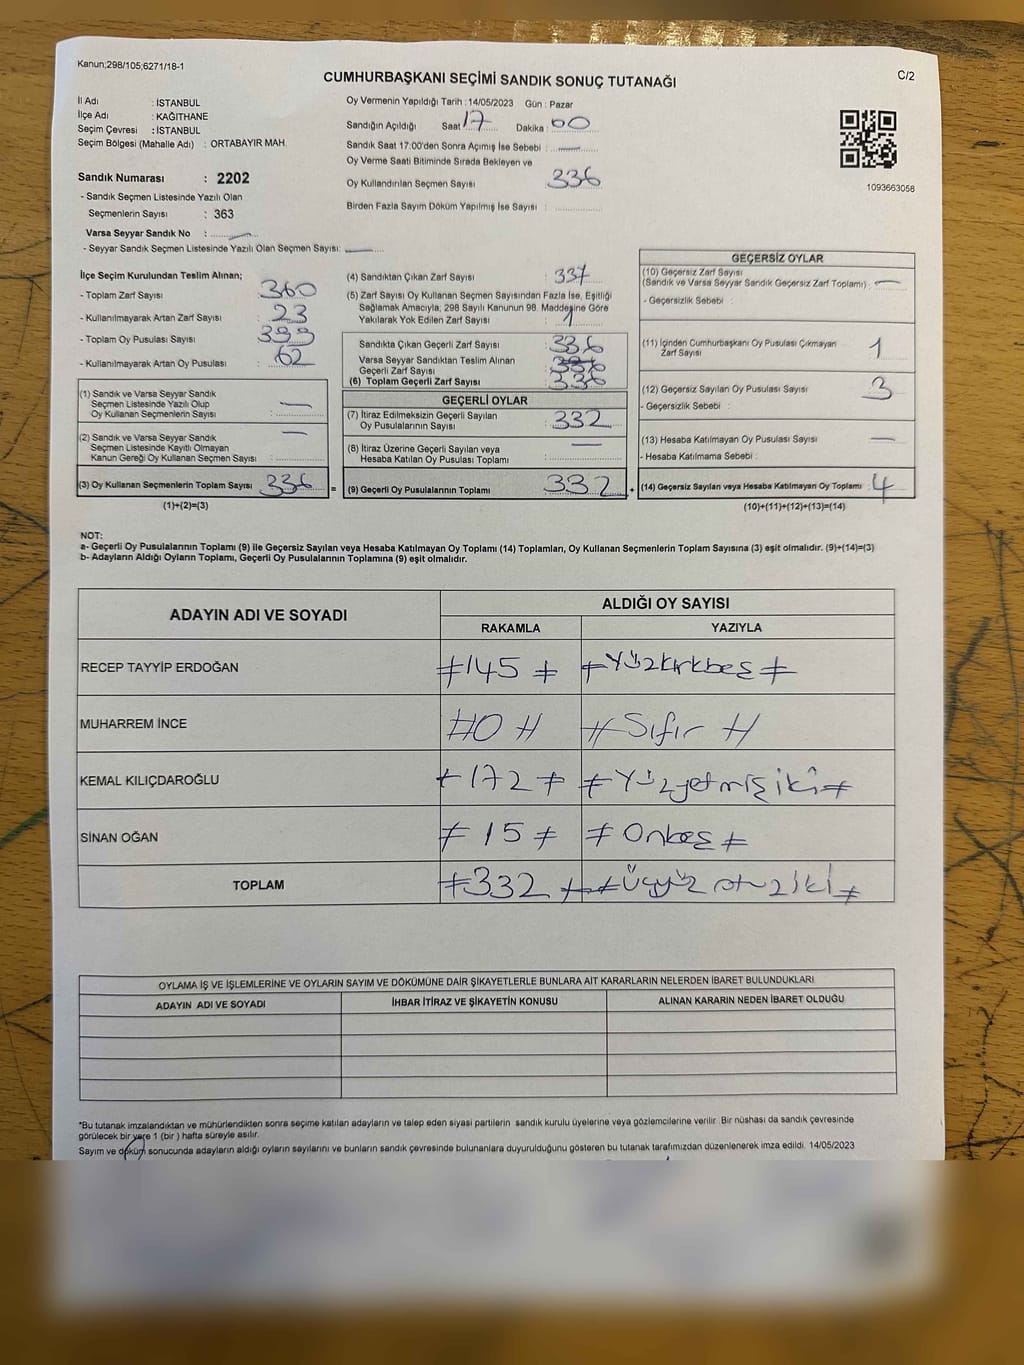 Kanun;298/105;6271/18-1
C/2
CUMHURBAŞKANI SEÇİMİ SANDIK SONUÇ TUTANAĞI
İl Adı : İSTANBUL
İlçe Adı : KAĞITHANE
Seçim Çevresi : İSTANBUL
Seçim Bölgesi (Mahalle Adı) : ORTABAYIR MAH.
Sandık Numarası : 2202
- Sandık Seçmen Listesinde Yazılı Olan
Seçmenlerin Sayısı : 363
Varsa Seyyar Sandık No :
- Seyyar Sandık Seçmen Listesinde Yazılı Olan Seçmen Sayısı:
Oy Vermenin Yapıldığı Tarih : 14/05/2023 Gün : Pazar
Sandığın Açıldığı Saat 17 Dakika : 00
Sandık Saat 17.00'den Sonra Açımış İse Sebebi :
Oy Verme Saati Bitiminde Sırada Bekleyen ve
Oy Kullandırılan Seçmen Sayısı 336
Birden Fazla Sayım Döküm Yapılmış İse Sayısı :
1093663058
İlçe Seçim Kurulundan Teslim Alınan;
- Toplam Zarf Sayısı : 360
- Kullanılmayarak Artan Zarf Sayısı : 23
- Toplam Oy Pusulası Sayısı :
- Kullanılmayarak Artan Oy Pusulası : 62
(1) Sandık ve Varsa Seyyar Sandık
Seçmen Listesinde Yazılı Olup
Oy Kullanan Seçmenlerin Sayısı :
(2) Sandık ve Varsa Seyyar Sandık
Seçmen Listesinde Kayıtlı Olmayan
Kanun Gereği Oy Kullanan Seçmen Sayısı :
(3) Oy Kullanan Seçmenlerin Toplam Sayısı 336 =
(1)+(2)=(3)
(4) Sandıktan Çıkan Zarf Sayısı : 337
(5) Zarf Sayısı Oy Kullanan Seçmen Sayısından Fazla İse, Eşitliği
Sağlamak Amacıyla, 298 Sayılı Kanunun 98. Maddesine Göre
Yakılarak Yok Edilen Zarf Sayısı : 1
Sandıkta Çıkan Geçerli Zarf Sayısı : 336
Varsa Seyyar Sandıktan Teslim Alınan
Geçerli Zarf Sayısı :
(6) Toplam Geçerli Zarf Sayısı : 336
GEÇERLİ OYLAR
(7) İtiraz Edilmeksizin Geçerli Sayılan
Oy Pusulalarının Sayısı : 332
(8) İtiraz Üzerine Geçerli Sayılan veya
Hesaba Katılan Oy Pusulası Toplamı :
(9) Geçerli Oy Pusulalarının Toplamı : 332 +
GEÇERSİZ OYLAR
(10) Geçersiz Zarf Sayısı
(Sandık ve Varsa Seyyar Sandık Geçersiz Zarf Toplamı) :
- Geçersizlik Sebebi :
(11) İçinden Cumhurbaşkanı Oy Pusulası Çıkmayan
Zarf Sayısı : 1
(12) Geçersiz Sayılan Oy Pusulası Sayısı : 3
- Geçersizlik Sebebi :
(13) Hesaba Katılmayan Oy Pusulası Sayısı :
- Hesaba Katılmama Sebebi :
(14) Geçersiz Sayılan veya Hesaba Katılmayan Oy Toplamı : 4
(10)+(11)+(12)+(13)=(14)
NOT:
a- Geçerli Oy Pusulalarının Toplamı (9) ile Geçersiz Sayılan veya Hesaba Katılmayan Oy Toplamı (14) Toplamları, Oy Kullanan Seçmenlerin Toplam Sayısına (3) eşit olmalıdır. (9)+(14)=(3)
b- Adayların Aldığı Oyların Toplamı, Geçerli Oy Pusulalarının Toplamına (9) eşit olmalıdır.
ADAYIN ADI VE SOYADI
ALDIĞI OY SAYISI
RAKAMLA YAZIYLA
RECEP TAYYİP ERDOĞAN ≠145≠ ≠Yüzkırkbeş≠
MUHARREM İNCE #0# #Sıfır#
KEMAL KILIÇDAROĞLU ≠172≠ ≠Yüzyetmişiki≠
SİNAN OĞAN ≠15≠ ≠Onbeş≠
TOPLAM ≠332≠ ≠Üçyüz otuziki≠
OYLAMA İŞ VE İŞLEMLERİNE VE OYLARIN SAYIM VE DÖKÜMÜNE DAİR ŞİKAYETLERLE BUNLARA AİT KARARLARIN NELERDEN İBARET BULUNDUKLARI
ADAYIN ADI VE SOYADI İHBAR İTİRAZ VE ŞİKAYETİN KONUSU ALINAN KARARIN NEDEN İBARET OLDUĞU
*Bu tutanak imzalandıktan ve mühürlendikten sonra seçime katılan adayların ve talep eden siyasi partilerin sandık kurulu üyelerine veya gözlemcilerine verilir. Bir nüshası da sandık çevresinde
görülecek bir yere 1 (bir ) hafta süreyle asılır.
Sayım ve döküm sonucunda adayların aldığı oyların sayılarını ve bunların sandık çevresinde bulunanlara duyurulduğunu gösteren bu tutanak tarafımızdan düzenlenerek imza edildi. 14/05/2023